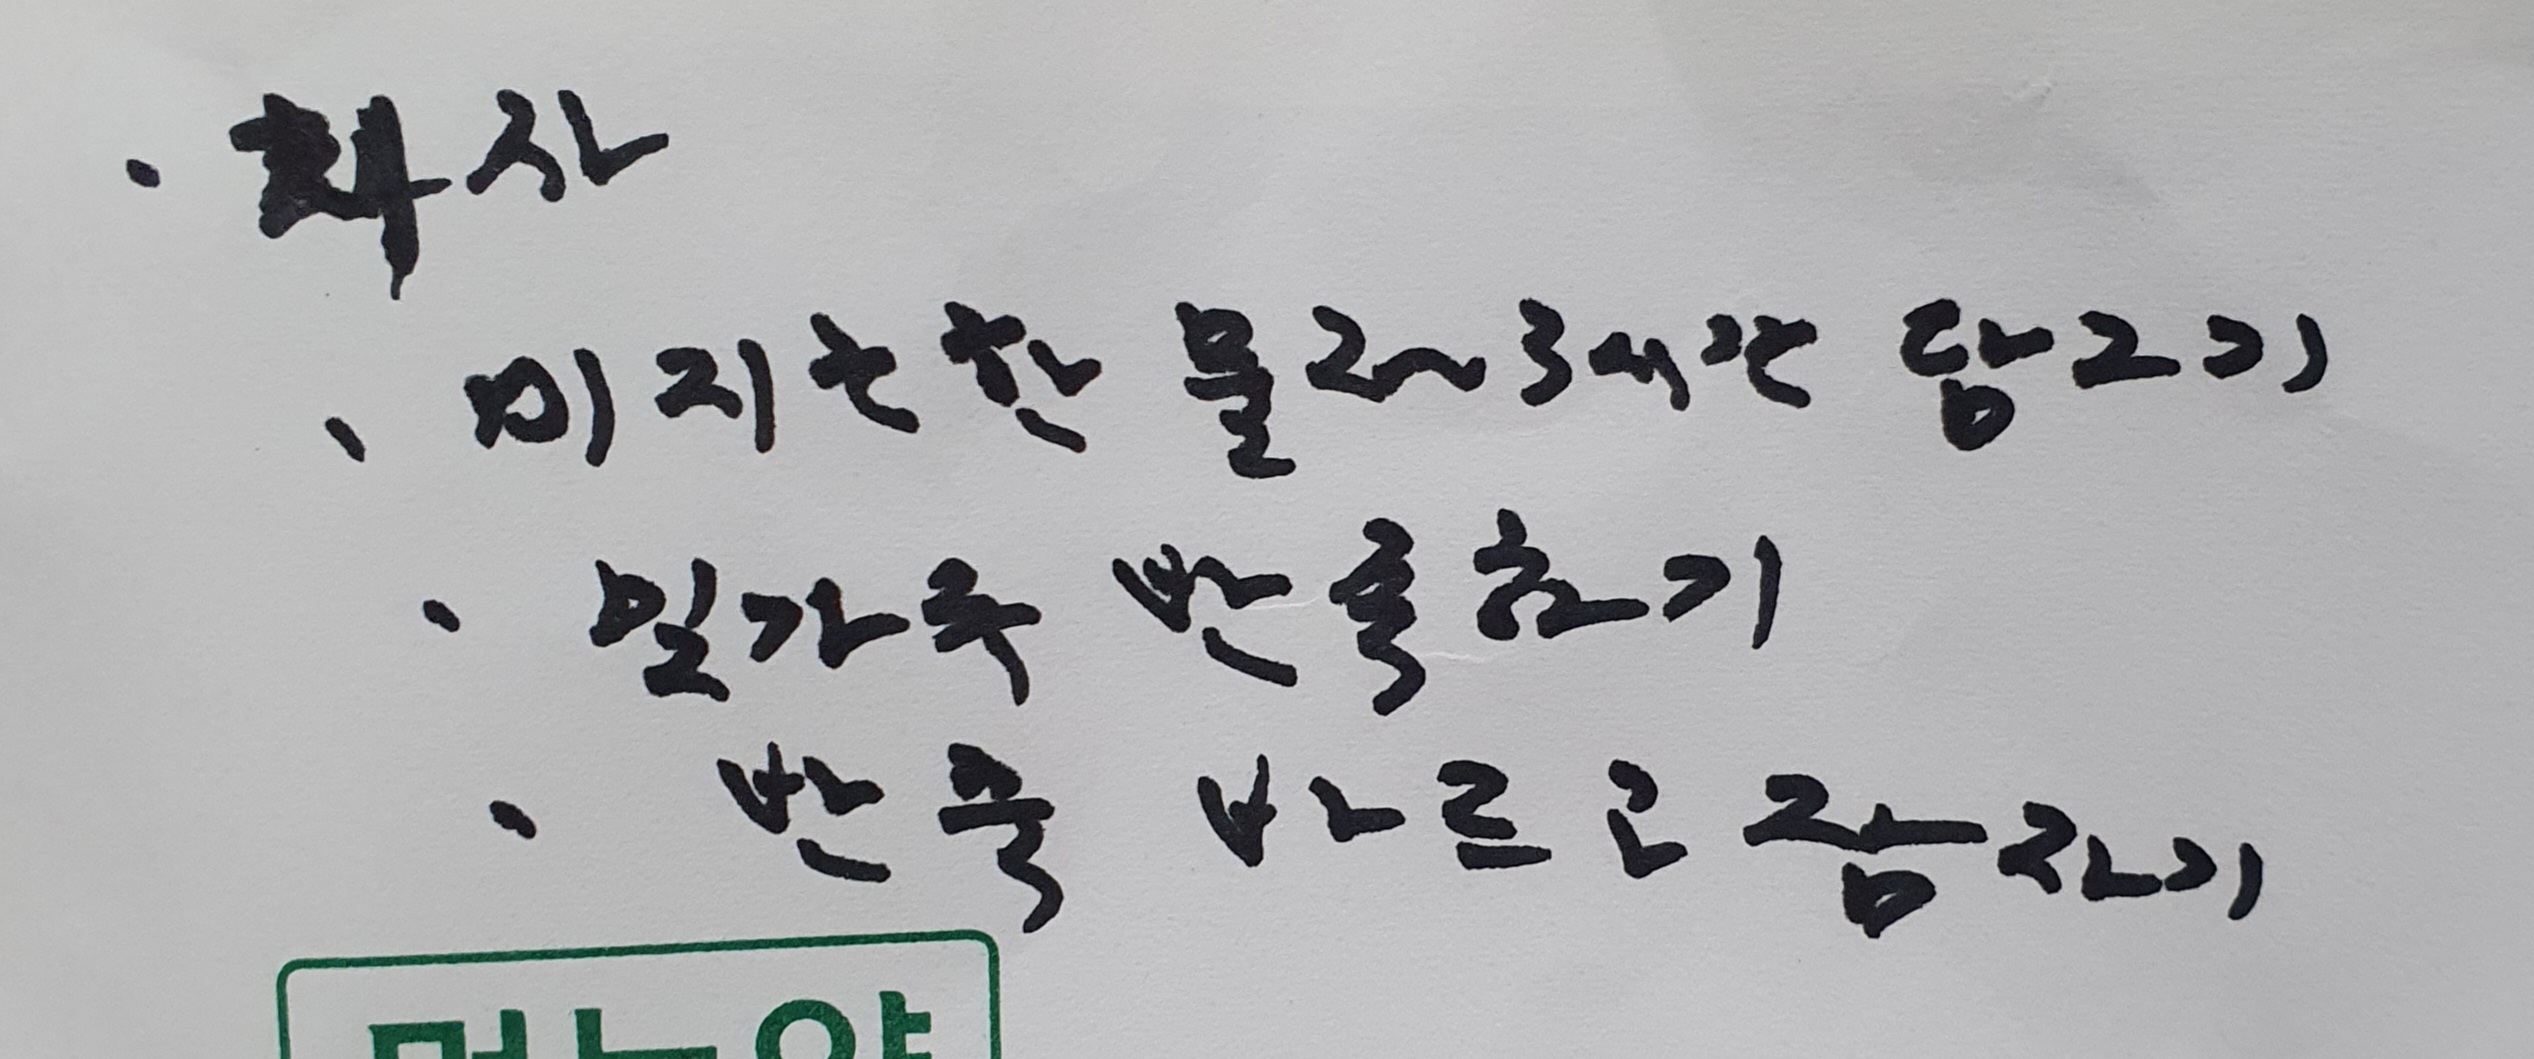 · 화상
· 미지근한 물 2~3시간 담그기
· 밀가루 반죽하기
· 반죽 바르고 잠자기